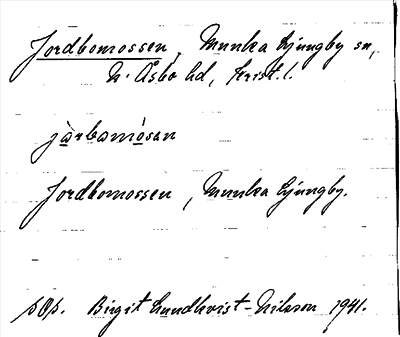 Jordbomossen, Munka Ljungby sn,
N. Åsbo hd, Krist. l.
jàrbamósan
Jordbomossen, Munka Ljungby.
Birgit Lundkvist-Nilsson 1941.